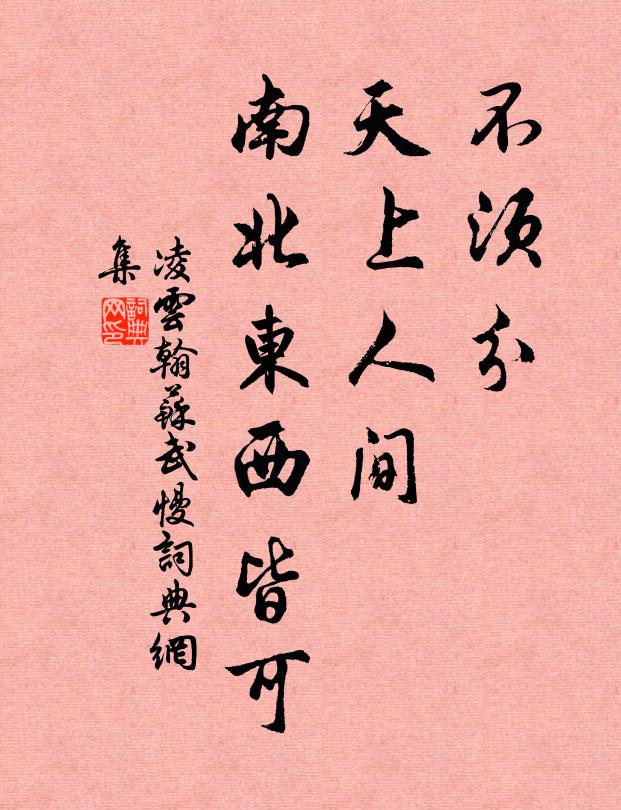 不須分
天上人间
南北東西皆可
凌雲翰蘇武慢詞典網
集
詞典
网印